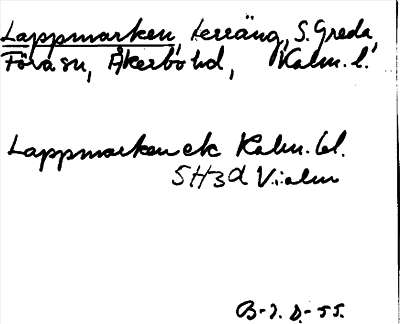 Lappmarken, terräng, S. Greda,
Föra sn, Åkerbo hd, Kalm. l.
Lappmarken ek Kalm. bl.
5H3d V. :alm
B-J. D-55.